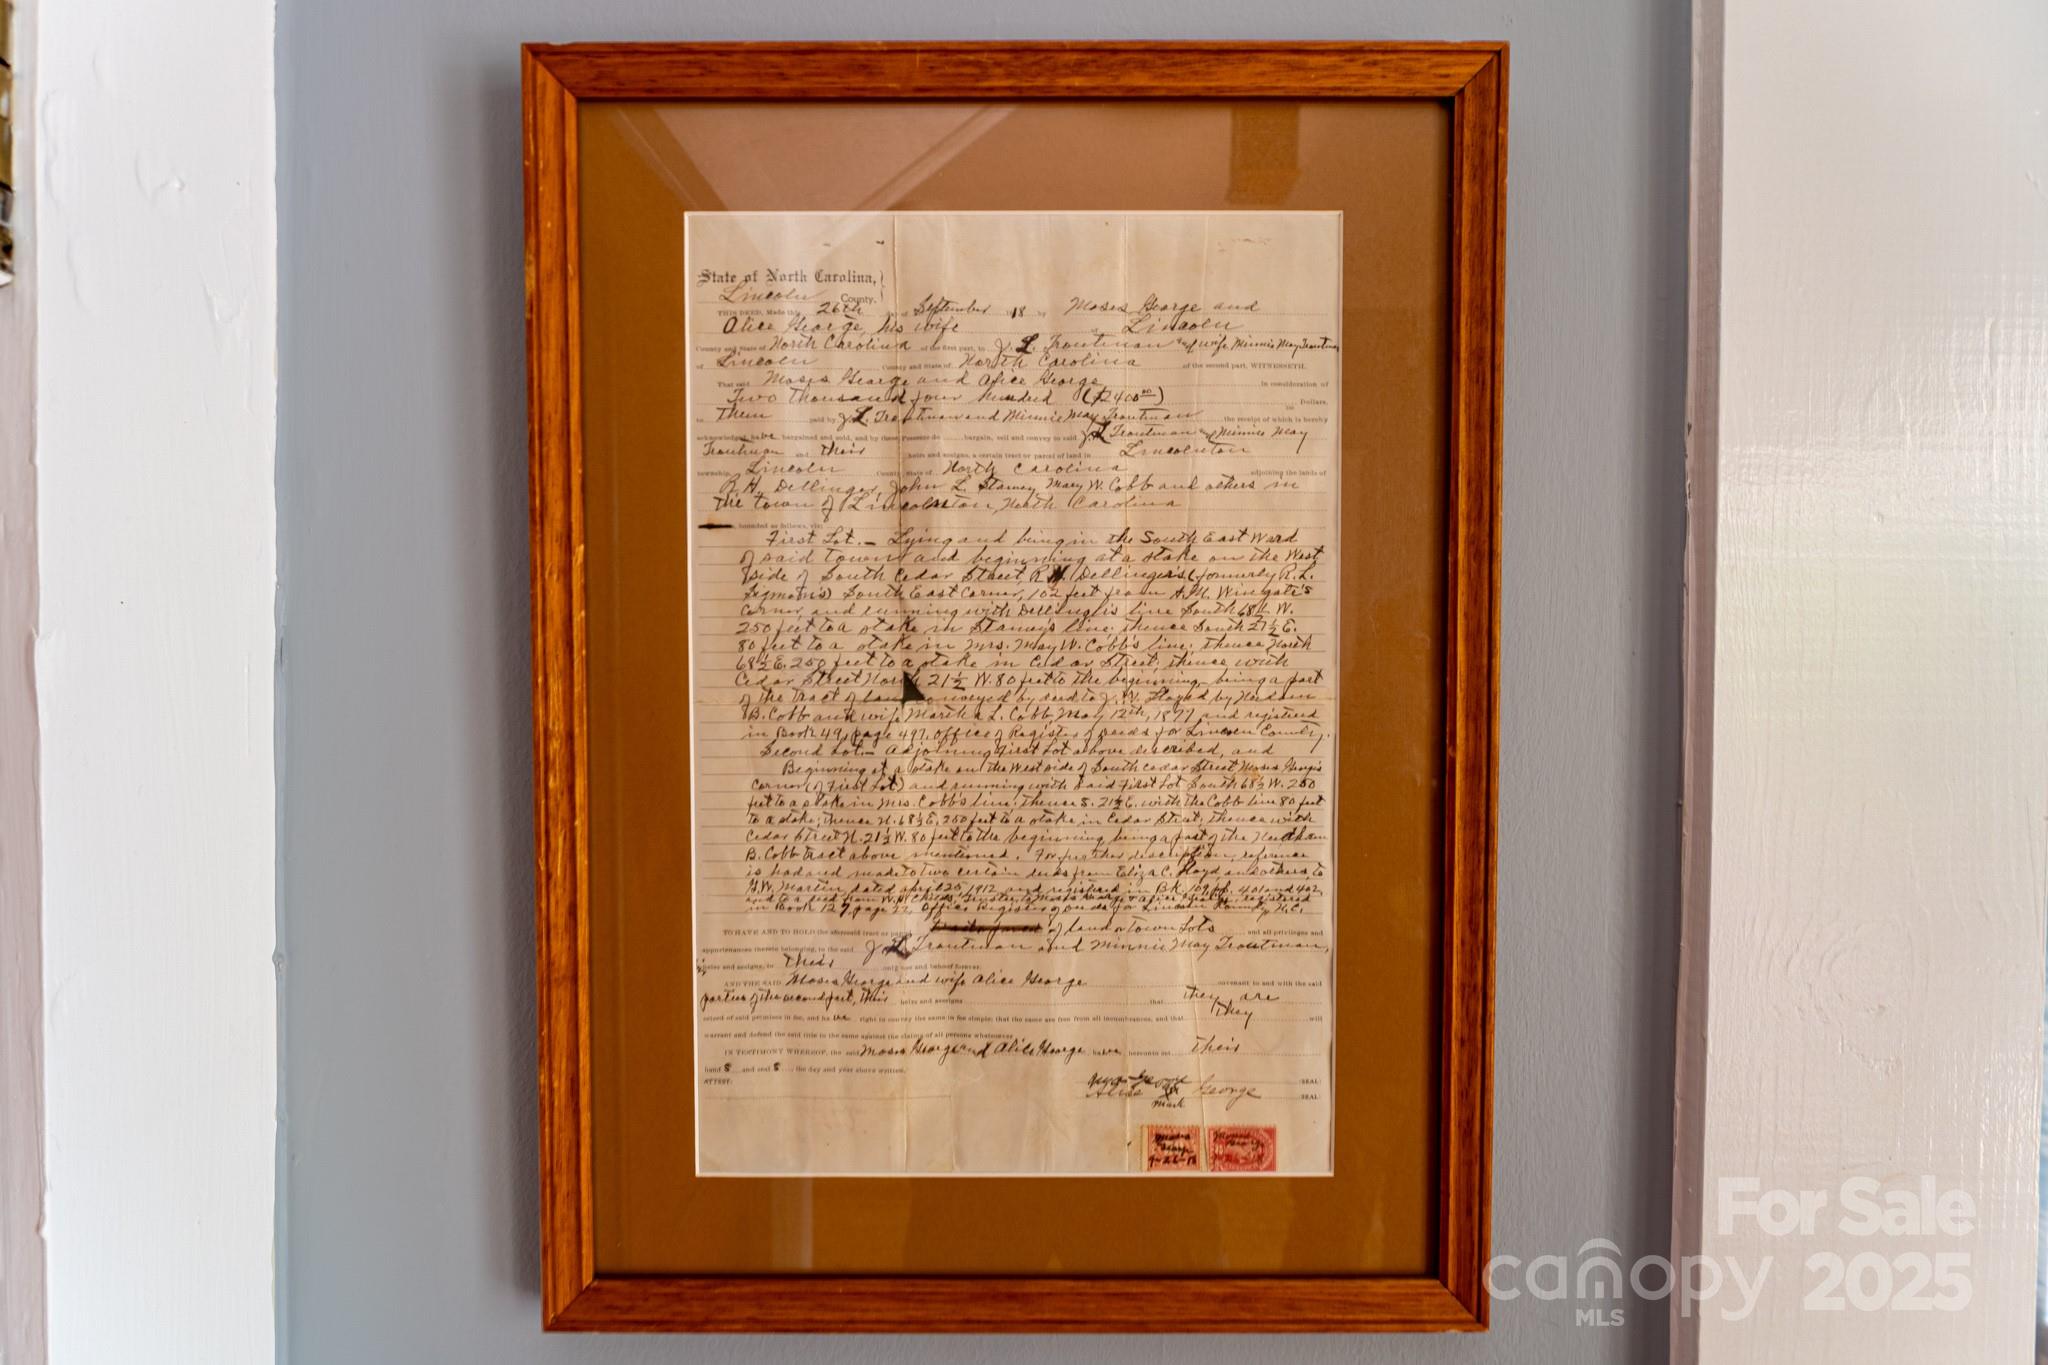 State of North Carolina,
Lincoln County.
THIS DEED, Made this 26th day of September 18 by Moses George and
Alice George, his wife of Lincoln
County and State of North Carolina of the first part, to J. L. Troutman and wife Minnie May Troutman
of Lincoln County and State of North Carolina of the second part, WITNESSETH.
That said Moses George and Alice George in consideration of
Two thousand four hundred ($2400.00) Dollars,
to them paid by J. L. Troutman and Minnie May Troutman the receipt of which is hereby
acknowledged, have bargained and sold, and by these Presents do bargain, sell and convey to said J. L. Troutman and Minnie May
Troutman and their heirs and assigns, a certain tract or parcel of land in Lincolnton
township, Lincoln County, State of North Carolina adjoining the lands of
R. H. Dellinger, John L. Stamey, Mary W. Cobb and others in
the town of Lincolnton, North Carolina
bounded as follows, viz:
First Lot.- Lying and being in the South East Ward
of said town and beginning at a stake on the West
side of South Cedar Street, R. H. Dellinger's (formerly R. L.
Sigmon's) South East Corner, 102 feet from A. M. Wingate's
Corner and running with Dellinger's line South 68½ W.
250 feet to a stake in Stamey's line; thence South 21½ E.
80 feet to a stake in Mrs. May W. Cobb's line; thence North
68½ E. 250 feet to a stake in Cedar Street; thence with
Cedar Street North 21½ W. 80 feet to the beginning, being a part
of the tract of land conveyed by deed to J. W. Floyd by Needham
B. Cobb and wife Martha L. Cobb, May 12th, 1877 and registered
in Book 49, page 497, office of Register of Deeds for Lincoln County.
Second Lot.- Adjoining First Lot above described, and
Beginning at a stake on the West side of South Cedar Street Moses George's
Corner (of First Lot) and running with said First Lot South 68½ W. 250
feet to a stake in Mrs. Cobb's line; thence S. 21½ E. with the Cobb line 80 feet
to a stake; thence N. 68½ E. 250 feet to a stake in Cedar Street; thence with
Cedar Street N. 21½ W. 80 feet to the beginning being a part of the Needham
B. Cobb tract above mentioned. For further description, reference
is had and made to two certain deeds from Eliza C. Floyd and others, to
G. W. Martin, dated April 25, 1912, and registered in Bk. 109, pp. 401 and 402,
and to a deed from W. A. Childs, Trustee, to Moses George & Alice George, registered
in Book 127, page 22, Office Register of Deeds for Lincoln County, N. C.
TO HAVE AND TO HOLD the aforesaid tract or parcel of land or Town Lots and all privileges and
appurtenances thereto belonging, to the said J. L. Troutman and Minnie May Troutman,
heirs and assigns, to their only use and behoof forever.
AND THE SAID Moses George and wife Alice George covenant to and with the said
parties of the second part, their heirs and assigns that they are
seized of said premises in fee, and have right to convey the same in fee simple; that the same are free from all incumbrances, and that they will
warrant and defend the said title to the same against the claims of all persons whatsoever
IN TESTIMONY WHEREOF, the said Moses George and Alice George have hereunto set their
hands and seals, the day and year above written.
ATTEST: (SEAL)
Alice X George (SEAL)
mark
Moses George 9-26-18
Moses George 9-26-18
For Sale
canopy 2025
MLS